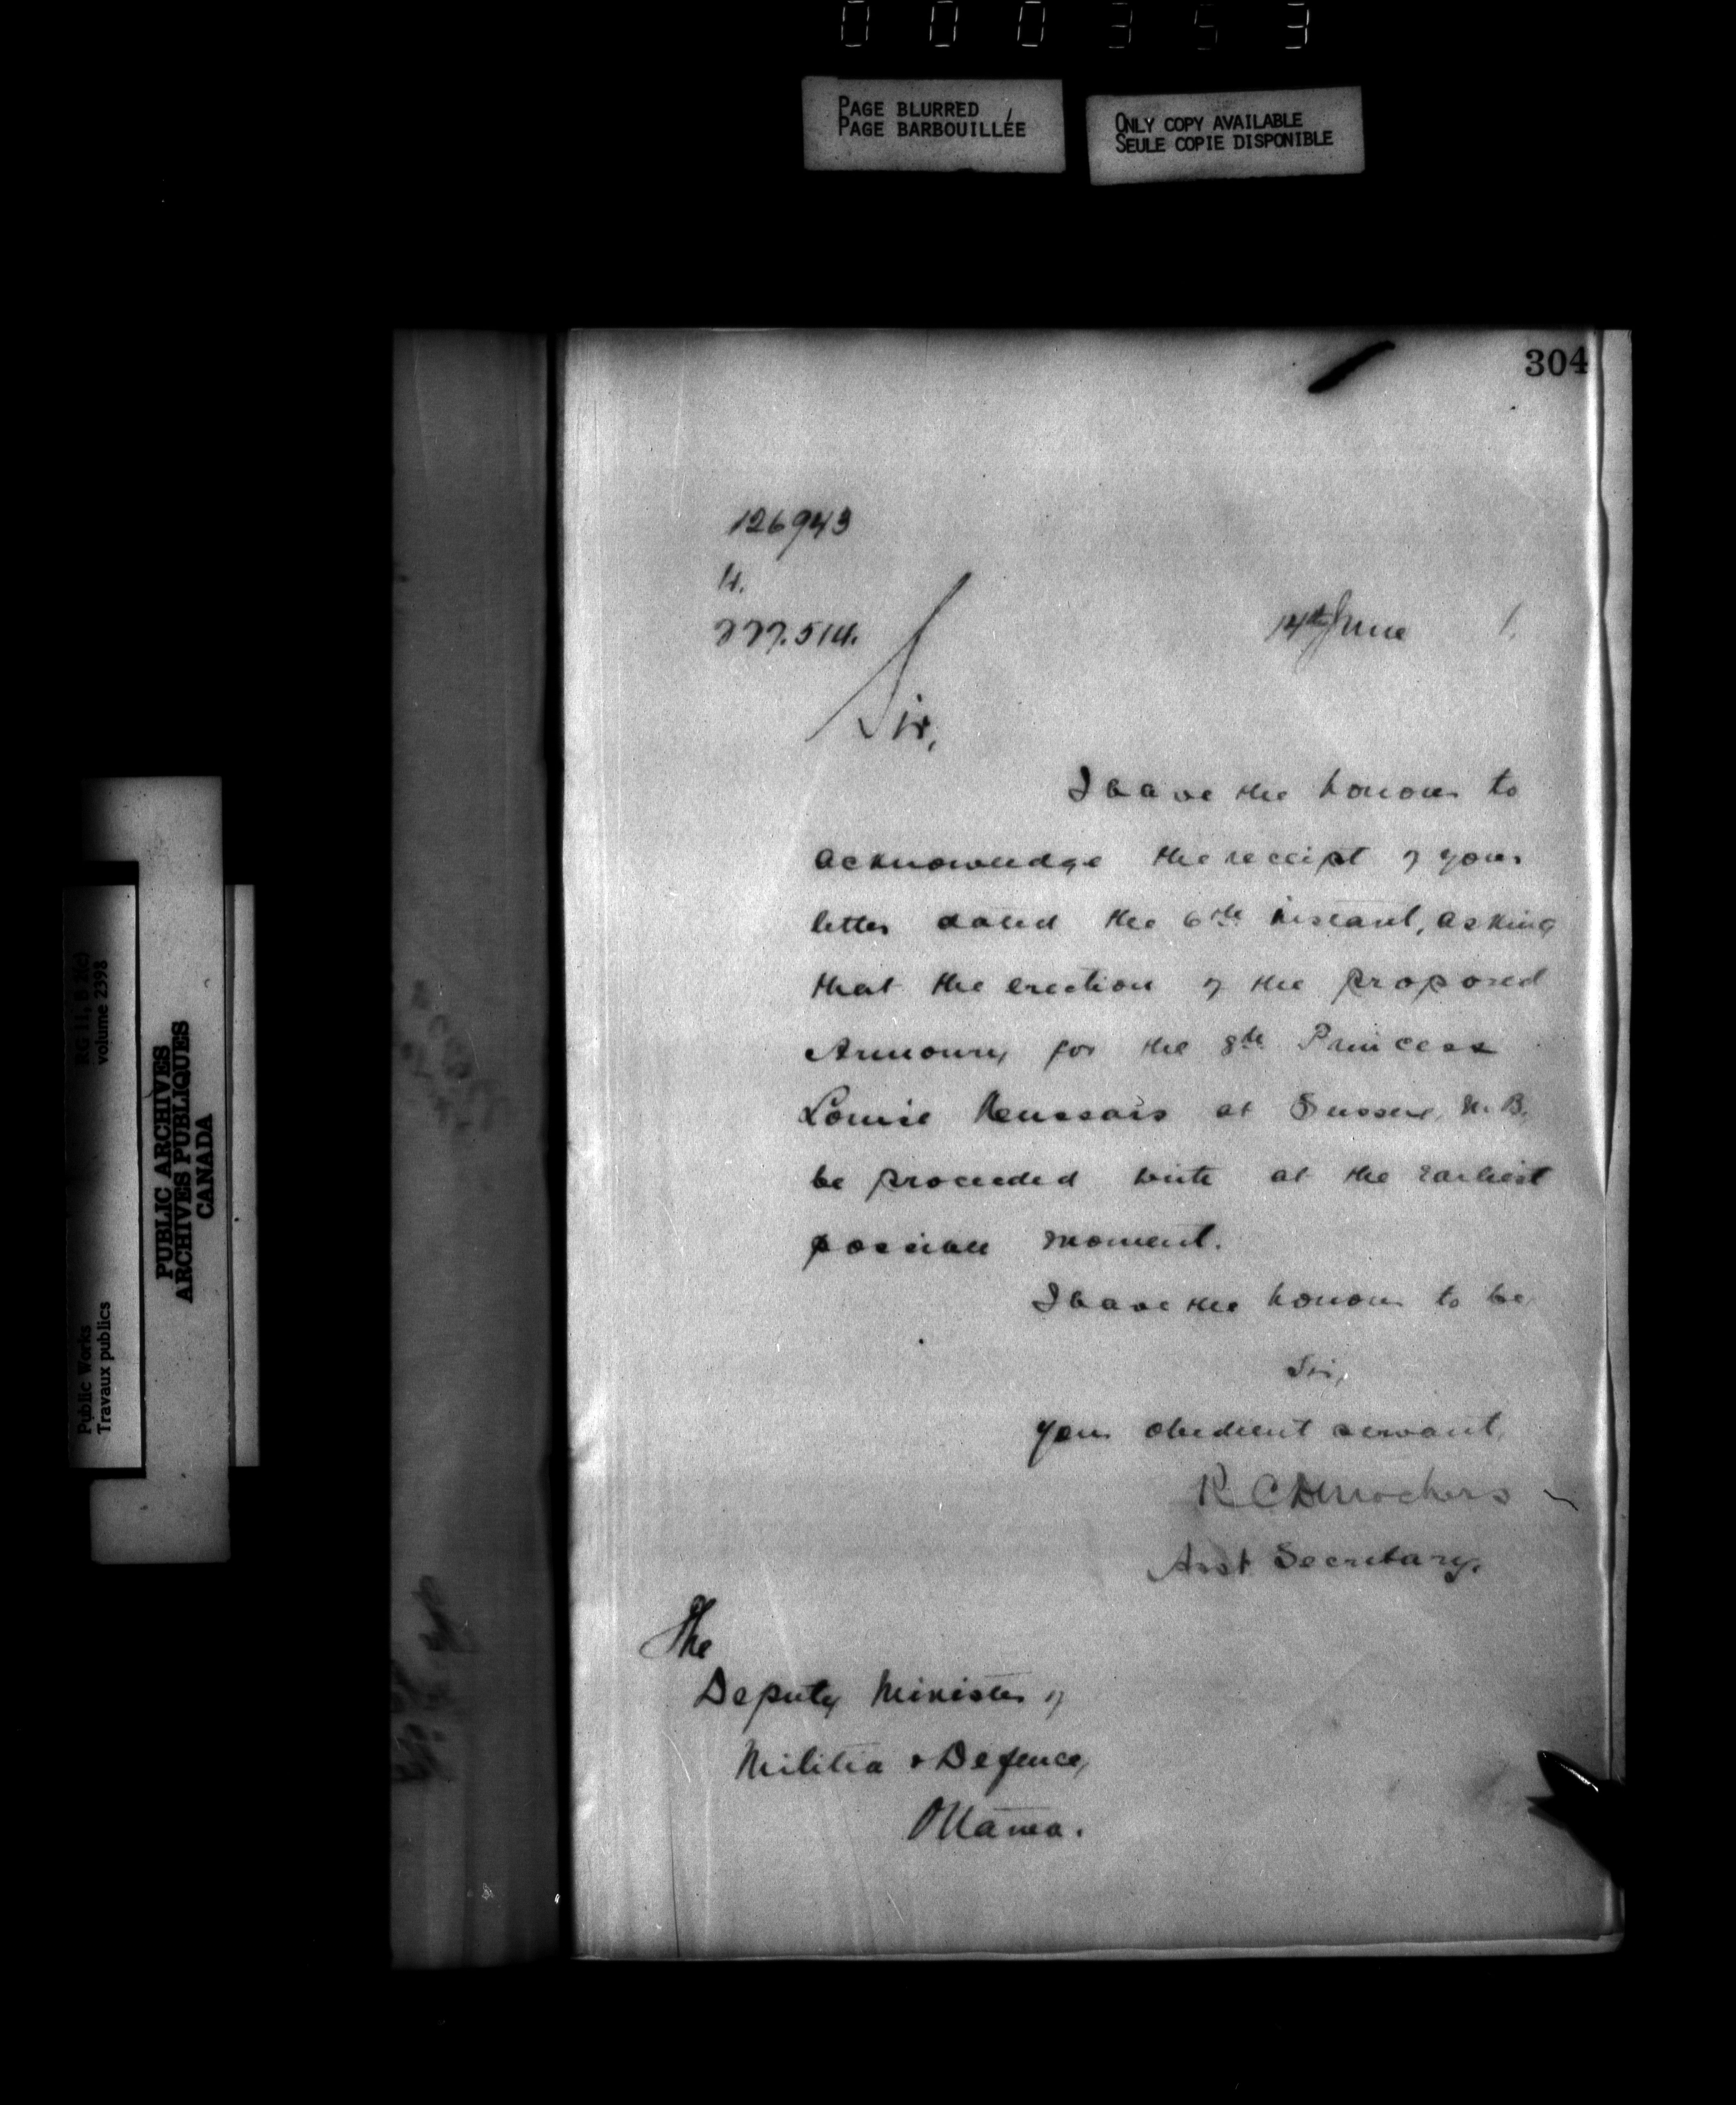 000353
PAGE BLURRED
PAGE BARBOUILLÉE
ONLY COPY AVAILABLE
SEULE COPIE DISPONIBLE
304
126943
14th June 1.
Sir,
I have the honour to
acknowledge the receipt of your
letter dated the 6th instant, asking
that the erection of the proposed
Armoury for the 8th Princess
Louise Hussars at Sussex, N.B.
be proceeded with at the earliest
possible moment.
I have the honour to be,
Sir,
Your obedient servant,
R C Desrochers
Asst Secretary.
The
Deputy Minister of
Militia & Defence,
Ottawa.
RG 11, B 2(c)
volume 2398
Public Works
Travaux publics
PUBLIC ARCHIVES
ARCHIVES PUBLIQUES
CANADA